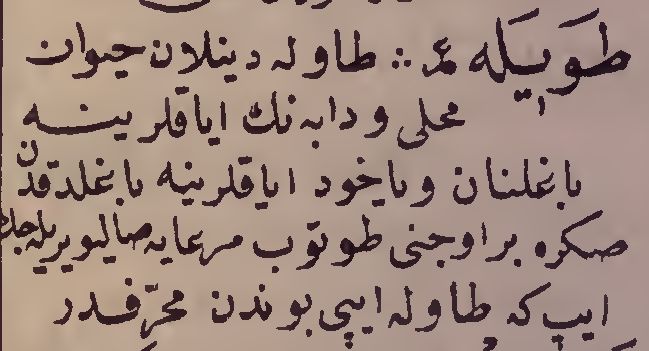 طَوَيلَه عر ∴ طاوله دينلان حيوان
محلى و دابه نك اياقلرينه
باغلنان وياخود اياقلرينه باغلدقدن
صكره بر اوجنى طوتوب مرعايه صاليويريله جك
ايپ كه طاوله ايپى بوندن محرّفدر